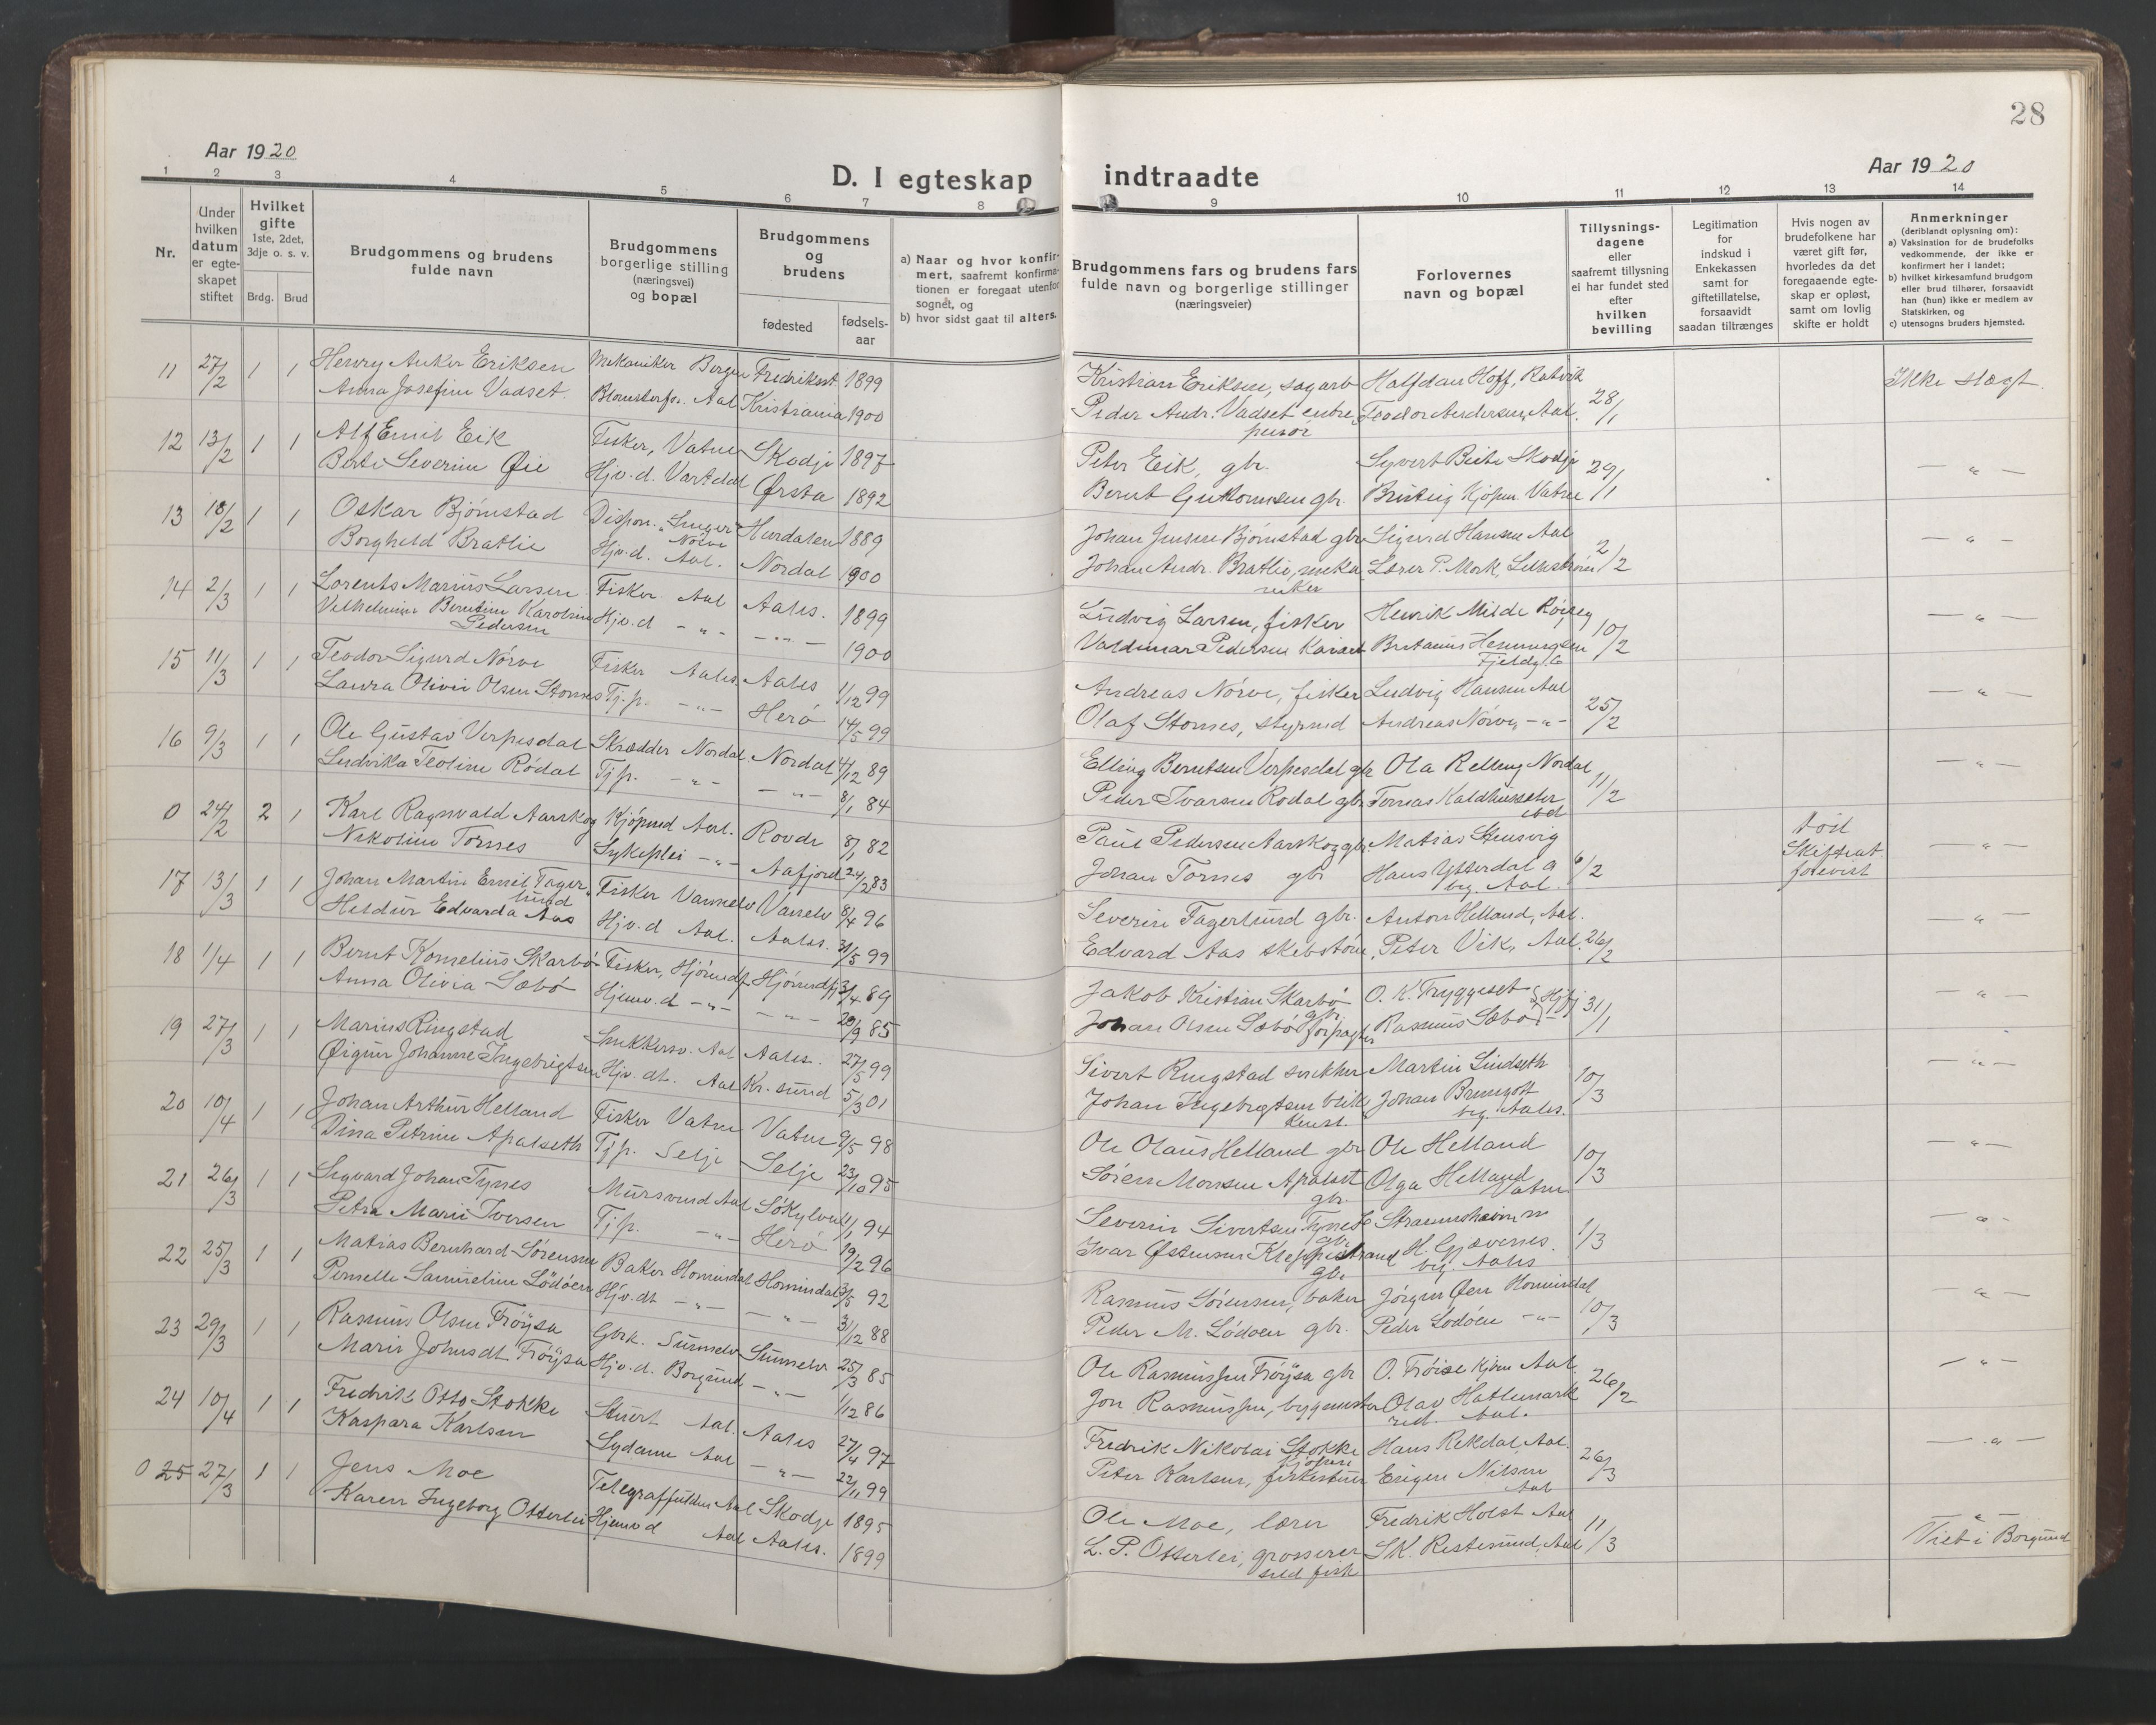 28
Aar 1920
Aar 1920
D. I egteskap indtraadte
1 2 3 4 5 6 7 8 9 10 11 12 13 14
Nr.
Under hvilken datum er egteskapet stiftet
Hvilket gifte 1ste, 2det, 3dje o. s. v.
Brdg. Brud
Brudgommens og brudens fulde navn
Brudgommens borgerlige stilling (næringsvei) og bopæl
Brudgommens og brudens
fødested fødsels-aar
a) Naar og hvor konfirmert, saafremt konfirmationen er foregaat utenfor sognet, og
b) hvor sidst gaat til alters.
Brudgommens fars og brudens fars fulde navn og borgerlige stillinger (næringsveier)
Forlovernes navn og bopæl
Tillysningsdagene eller saafremt tillysning ei har fundet sted efter hvilken bevilling
Legitimation for indskud i Enkekassen samt for giftetillatelse, forsaavidt saadan tiltrænges
Hvis nogen av brudefolkene har været gift før, hvorledes da det foregaaende egteskap er opløst, samt om lovlig skifte er holdt
Anmerkninger (deriblandt oplysning om):
a) Vaksination for de brudefolks vedkommende, der ikke er konfirmert her i landet;
b) hvilket kirkesamfund brudgom eller brud tilhører, forsaavidt han (hun) ikke er medlem av Statskirken, og
c) utensogns bruders hjemsted.
11 27/2 1 1 Henry Anker Eriksen Mekaniker Bergen Fredrikst. 1899 Kristian Eriksen, sagarb Halfdan Hoff, Ratvik 28/1 Ikke slægt.
Anna Josefine Vadset. Blomsterfor. Aal Kristiania 1900 Peder Andr. Vadset entre Teodor Andersen, Aal.
penør
12 13/2 1 1 Alf Emil Eik Fisker, Vatne Skodje 1897 Peter Eik, gbr. Syvert Beite Skodje 29/1 — " —
Berte Severine Øie Hjv. d. Vartdal Ørsta 1892 Bernt Guttormsen gbr. Kjøpm. Vatne
13 18/2 1 1 Oskar Bjørnstad Dispon. "Singer" Hurdalen 1889 Johan Jensen Bjørnstad gbr Sigurd Hansen Aal 2/2 — " —
Nörve
Borghild Bratlie Hjv. d. Aal. Nordal 1900 Johan Andr. Bratlie, meka Lærer P. Mork,
niker
14 2/3 1 1 Lorents Marius Larsen Fisker Aal Aales. 1899 Ludvig Larsen, fisker Henrik Milde 10/2 — " —
Vilhelmine Berntine Karoline Hjv. d — " — — " — 1900 Valdemar Pedersen Henningsen
Pedersen Fjeldg. 6
15 11/3 1 1 Teodor Sigurd Nörve Fisker Aales. Aales 1/12 99 Andreas Nörve, fisker Ludvig Hansen Aal 25/2 — " —
Laura Olivie Olsen Stornes Tj.p. — " — Herö 14/5 99 Olaf Stornes, styrmd Andreas Nörve — " —
16 9/3 1 1 Ole Gustav Verpesdal Skrædder Nordal Nordal 4/12 89 Elling Berntsen Verpesdal gbr Ola Relling Nordal 11/2 — " —
Ludvika Teoline Rödal Tjp. — " — — " — 8/1 84 Peder Ivarsen Rødal gbr Tomas Kaldhusseter
ibd
0 24/2 2 1 Karl Ragnvald Aarskog Kjöpmd Aal. Rovde 8/1 82 Paul Pedersen Aarskog gbr. Matias Stensvig 6/2 död Skifteat. forevist — " —
Nikoline Tornes Sykeplei — " — Aafjord 24/2 83 Johan Tornes gbr Hans Ytterdal a
beg. Aal.
17 13/3 1 1 Johan Martin Emil Fager Fisker Vannelv Vannelv 8/4 96 Severin Fagerlund gbr. Anton Helland, Aal. 26/2 — " —
lund
Heldur Edvarda Aas Hjv. d Aal. Aales. 31/5 99 Edvard Aas Peter Vik, Aal.
18 1/4 1 1 Bernt Kornelius Skarbö Fisker, Hjörundf Hjörundfj 3/4 89 Jakob Kristian Skarbö O. K. Tryggeset Hjfj 31/1 — " —
gbr.
Anna Olivia Sæbö Hjemv. d — " — — " — 20/9 85 Johan Olsen Sæbö forpagter Rasmus Sæbö
19 27/3 1 1 Marius Ringstad Snekkersv. Aal Aales. 27/5 99 Sivert Ringstad snekker Martin Lindseth 10/3 — " —
Öigun Johanne Ingebrigtsen Hjv. dt. Aal Kr. sund 5/3 01 Johan Ingebrigtsen blik Johan Bremgott
kensl. beg. Aales.
20 10/4 1 1 Johan Arthur Helland Fisker Vatne Vatne 9/5 98 Ole Olaus Helland gbr Ole Helland 10/3 — " —
Dina Petrine Apalseth Tjp. Selje Selje 23/10 95 Sören Monsen Apalset Olga Helland
gbr. Vatne
21 26/3 1 1 Sigvard Johan Tynes Mursvend Aal Sökylven 11/1 94 Severin Sivertsen Tynes 1/3 — " —
gbr.
Petra Marie Iversen Tjp. — " — Herö 19/2 96 Ivar Østensen Kleppestrand H. Gjævenes.
gbr. beg. Aales
22 25/3 1 1 Matias Bernhard Sörensen Baker Hornindal Hornindal 3/5 92 Rasmus Sörensen, baker Jörgen Øen Hornindal 10/3 — " —
Pernelle Samueline Lödöen Hjv. dt — " — — " — 31/12 88 Peder M. Lödöen gbr. Peder Lödöen — " —
23 29/3 1 1 Rasmus Olsen Fröysa Gbrk. Sunnelv Sunnelv 25/3 85 Ole Rasmussen Fröysa gbr O. Fröise Kjbm Aal. 26/2 — " —
Marie Johnsdt Fröysa Hjv. d. Borgund — " — 1/12 86 Jon Rasmussen, bygmester Olav Hatlemark
red. Aal.
24 10/4 1 1 Fredrik Otto Stokke Stuert Aal. Aales 27/4 97 Fredrik Nikolai Stokke Hans Rekdal, Aal. 26/3 — " —
kjøpm
Kaspara Karlsen Sydame Aal — " — 22/11 99 Peter Karlsen, Erigen Nilsen
Aal
0 25 27/3 1 1 Jens Moe Aal Skodje 1895 Ole Moe, lærer Fredrik Holst Aal 11/3 — " —
Karen Ingeborg Otterlei Hjemv d Aal Aales. 1899 L. P. Otterlei, grosserer SK. Restesund, Aal Viet i Borgund
sild fisk